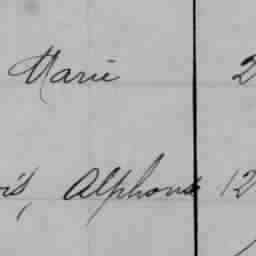 Marie 2
is, Alphons 12